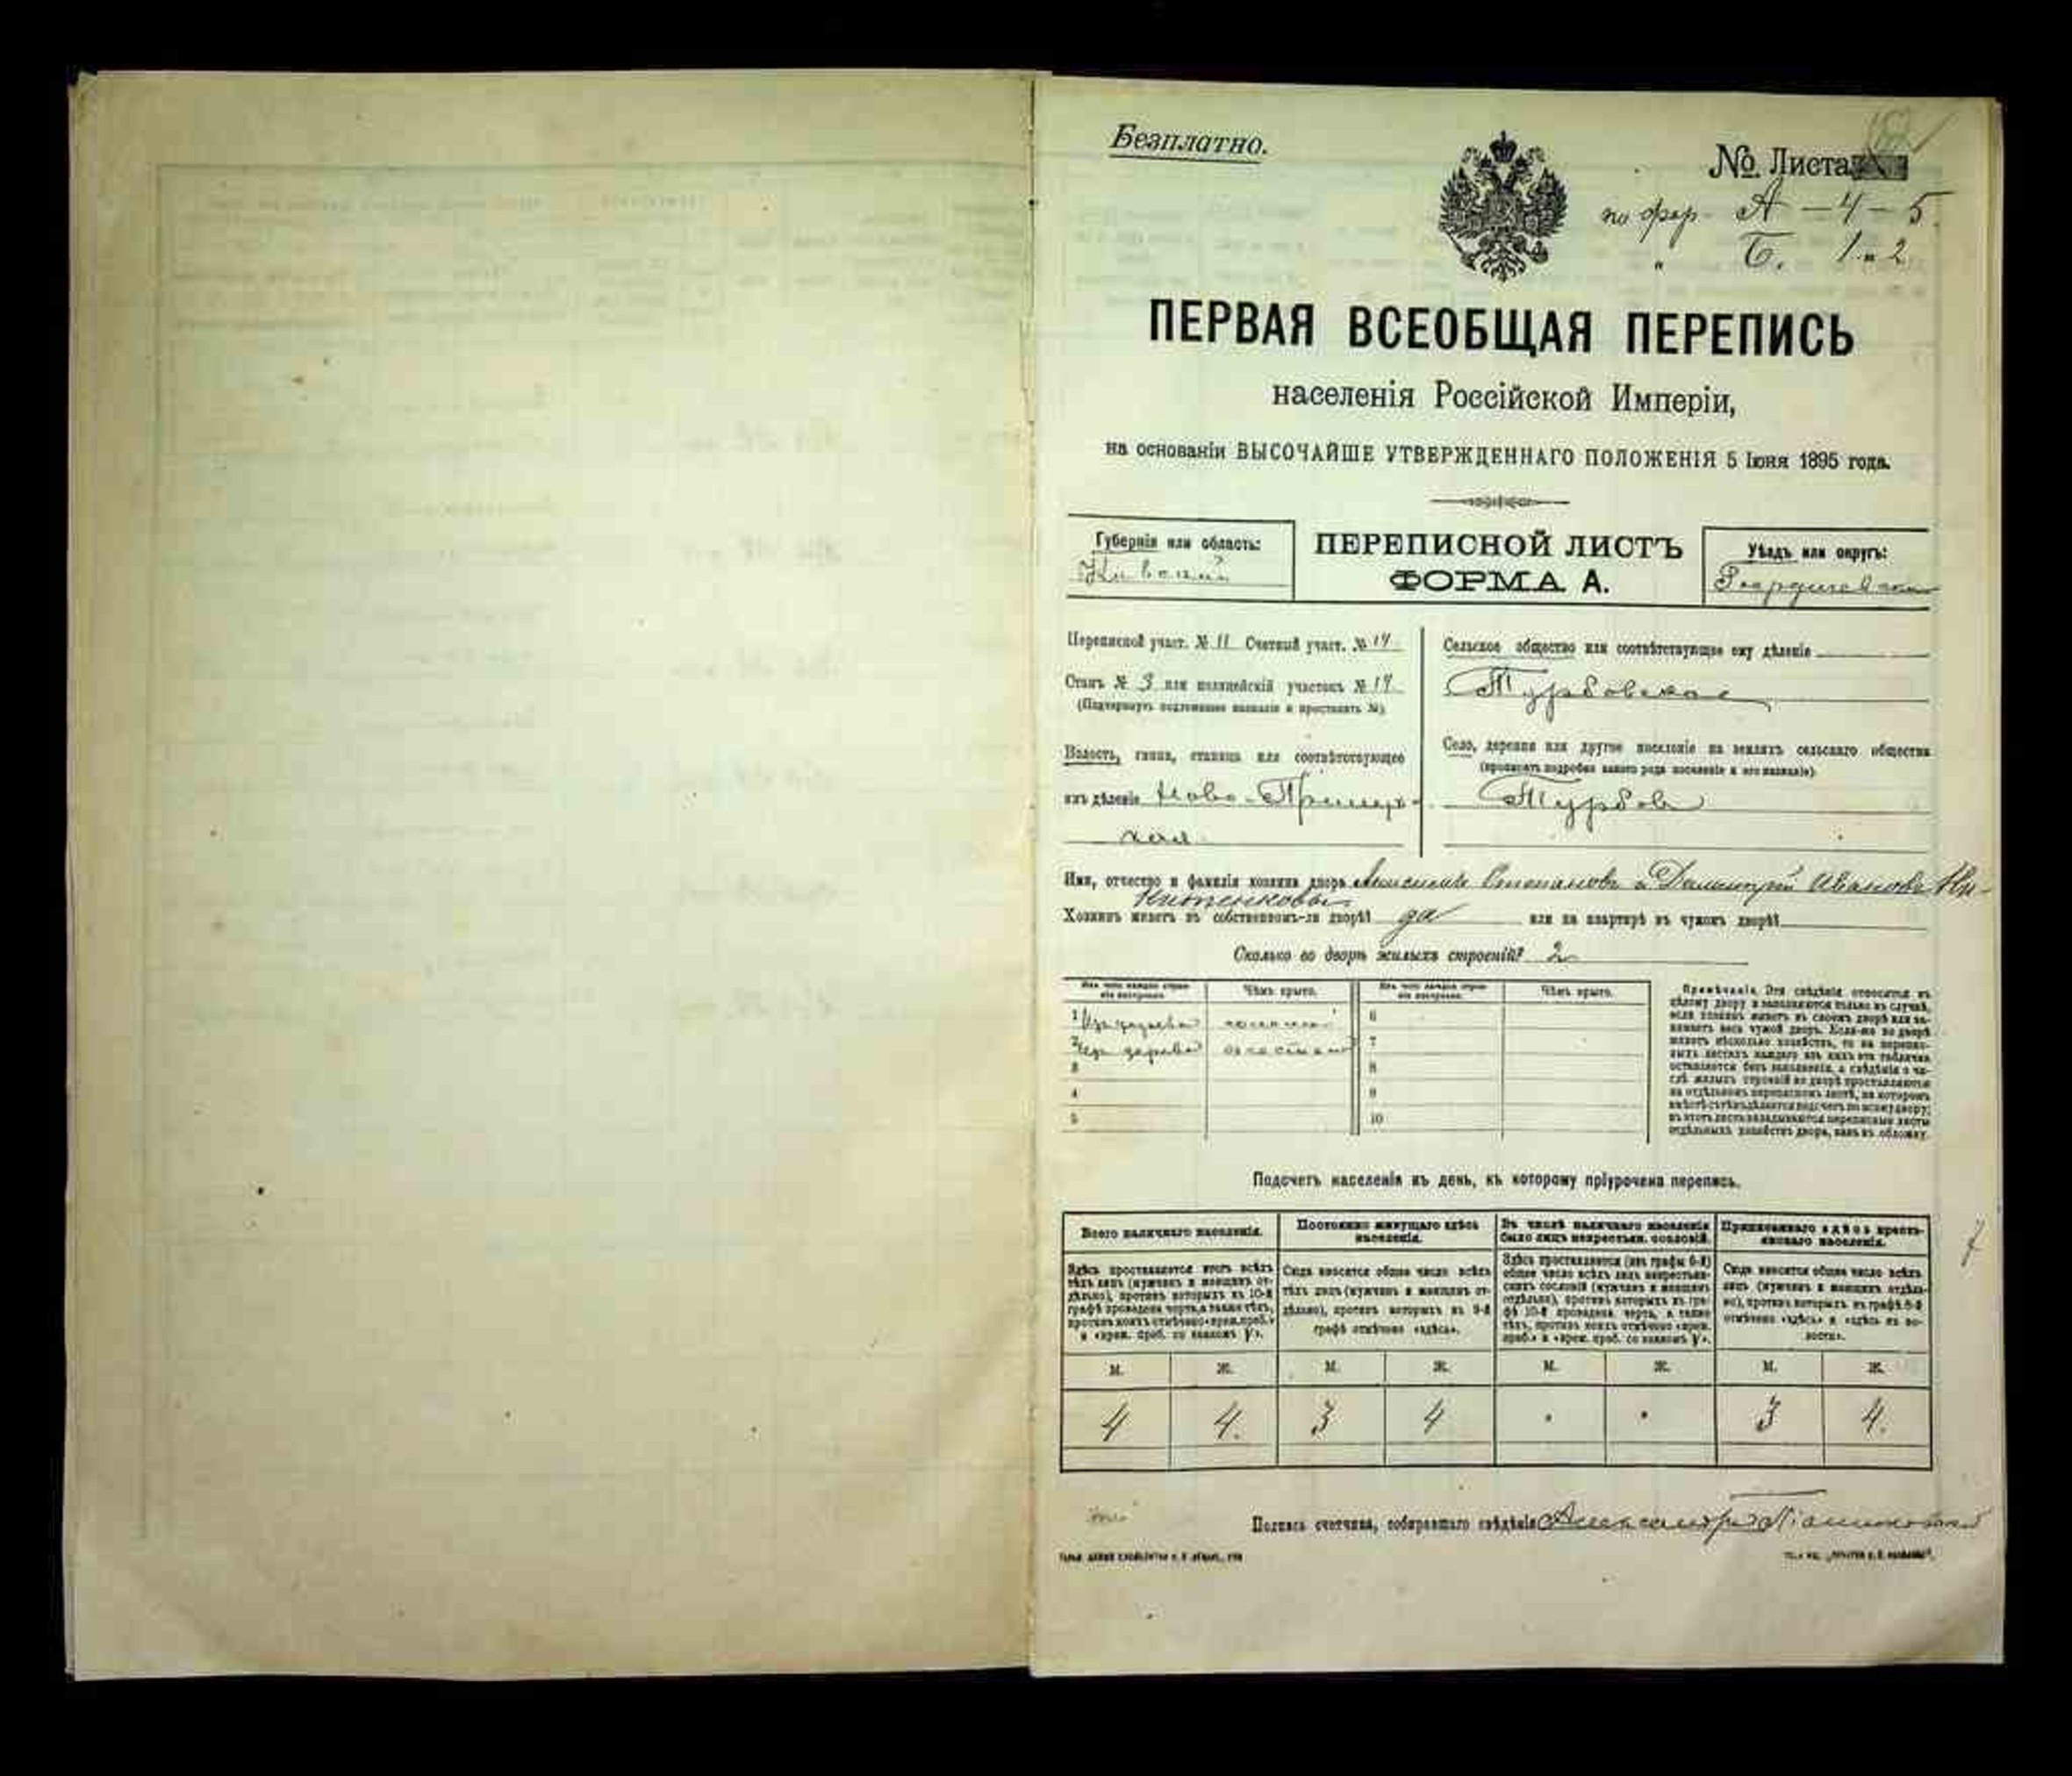 Безплатно.
№ Листа
по фор. А — 4 — 5.
" Б. 1 и 2
ПЕРВАЯ ВСЕОБЩАЯ ПЕРЕПИСЬ
населенія Россійской Имперіи,
на основаніи ВЫСОЧАЙШЕ УТВЕРЖДЕННАГО ПОЛОЖЕНІЯ 5 Іюня 1895 года.
Губернія или область:
ПЕРЕПИСНОЙ ЛИСТЪ
ФОРМА А.
Уѣздъ или округъ:
Переписной участ. № 11 Счетный участ. №
Станъ № 3 или полицейскій участокъ №
(Подчеркнуть подлежащее названіе и проставить №).
Волость, гмина, станица или соотвѣтствующее
имъ дѣленіе Ново-
Сельское общество или соотвѣтствующее ему дѣленіе
Турбовское
Село, деревня или другое поселеніе на земляхъ сельскаго общества
(прописать подробно какого рода поселеніе и его названіе)
Турбов
Имя, отчество и фамилія хозяина двора Степановъ и Димитрій Ивановъ
Хозяинъ живетъ въ собственномъ-ли дворѣ? да или на квартирѣ въ чужомъ дворѣ?
Сколько во дворѣ жилыхъ строеній? 2
Изъ чего каждое строеніе построено. Чѣмъ крыто. Изъ чего каждое строеніе построено. Чѣмъ крыто.
1 Изъ дерева 6
2 Изъ дерева 7
3 8
4 9
5 10
Примѣчаніе. Эти свѣдѣнія относятся къ
цѣлому двору и заполняются только въ случаѣ,
если хозяинъ живетъ въ своемъ дворѣ или занимаетъ весь чужой дворъ. Если-же во дворѣ
живетъ нѣсколько хозяйствъ, то на переписныхъ листахъ каждаго изъ нихъ эта табличка
оставляется безъ заполненія, а свѣдѣнія о числѣ жилыхъ строеній во дворѣ проставляются
на отдѣльномъ переписномъ листѣ, на которомъ
вмѣстѣ съ тѣмъ дѣлается подсчетъ по всему двору;
въ этотъ листъ вкладываются переписные листы
отдѣльныхъ хозяйствъ двора, какъ въ обложку.
Подсчетъ населенія въ день, къ которому пріурочена перепись.
Всего наличнаго населенія.
Здѣсь проставляется итогъ всѣхъ
тѣхъ лицъ (мужчинъ и женщинъ отдѣльно), противъ которыхъ въ 10-й
графѣ проведена черта, а также тѣхъ,
противъ коихъ отмѣчено «врем. преб.»
и «врем. преб. со знакомъ V».
Постоянно живущаго здѣсь
населенія.
Сюда вносится общее число всѣхъ
тѣхъ лицъ (мужчинъ и женщинъ отдѣльно), противъ которыхъ въ 9-й
графѣ отмѣчено «здѣсь».
Въ числѣ наличнаго населенія
было лицъ некрестьян. сословій.
Здѣсь проставляется (изъ графы 6-й)
общее число всѣхъ лицъ некрестьянскихъ сословій (мужчинъ и женщинъ
отдѣльно), противъ которыхъ въ графѣ 10-й проведена черта, а также
тѣхъ, противъ коихъ отмѣчено «врем.
преб.» и «врем. преб. со знакомъ V».
Приписаннаго здѣсь крестьянскаго населенія.
Сюда вносится общее число всѣхъ
лицъ (мужчинъ и женщинъ отдѣльно), противъ которыхъ въ графѣ 8-й
отмѣчено «здѣсь» и «здѣсь въ волости».
М. Ж. М. Ж. М. Ж. М. Ж.
4 4. 3 4 . . 3 4.
Подпись счетчика, собиравшаго свѣдѣнія Александръ